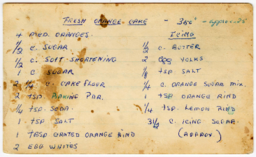 FRESH ORANGE CAKE - 350° - approx. 35
4 MED. ORANGES
1/2 C. SUGAR
1/2 C. SOFT SHORTENING
1 C. SUGAR
2 C. CAKE FLOUR
2 tsp. BAKING POR.
1/4 tsp. SODA
1 tsp. SALT
1 TBSP GRATED ORANGE RIND
2 EGG WHITES
ICING
1/2 C. BUTTER
2 EGG YOLKS
1/4 tsp. SALT
1/4 C. ORANGE SUGAR MIX.
1 tsp. ORANGE RIND
1/4 tsp. LEMON RIND
3 1/2 C. ICING SUGAR
(APPROX)